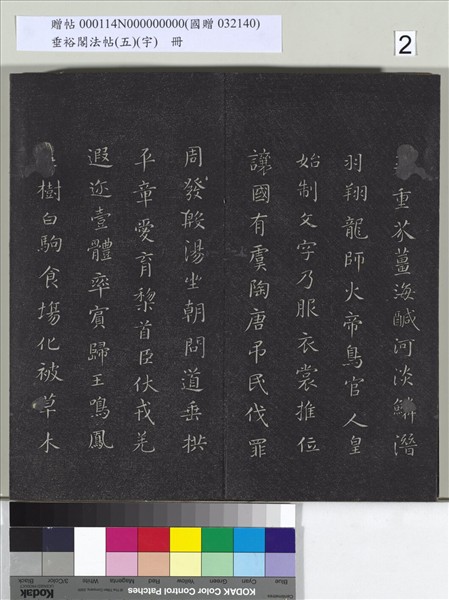 贈帖 000114N000000000(國贈 032140)
垂裕閣法帖(五)(宇) 冊
2
重芥薑海鹹河淡鱗潛
羽翔龍師火帝鳥官人皇
始制文字乃服衣裳推位
讓國有虞陶唐吊民伐罪
周發殷湯坐朝問道垂拱
平章愛育黎首臣伏戎羌
遐迩壹體率賓歸王鳴鳳
樹白駒食場化被草木
Blue Cyan Green Yellow Red Magenta White 3/Color Black
KODAK Color Control Patches
Kodak